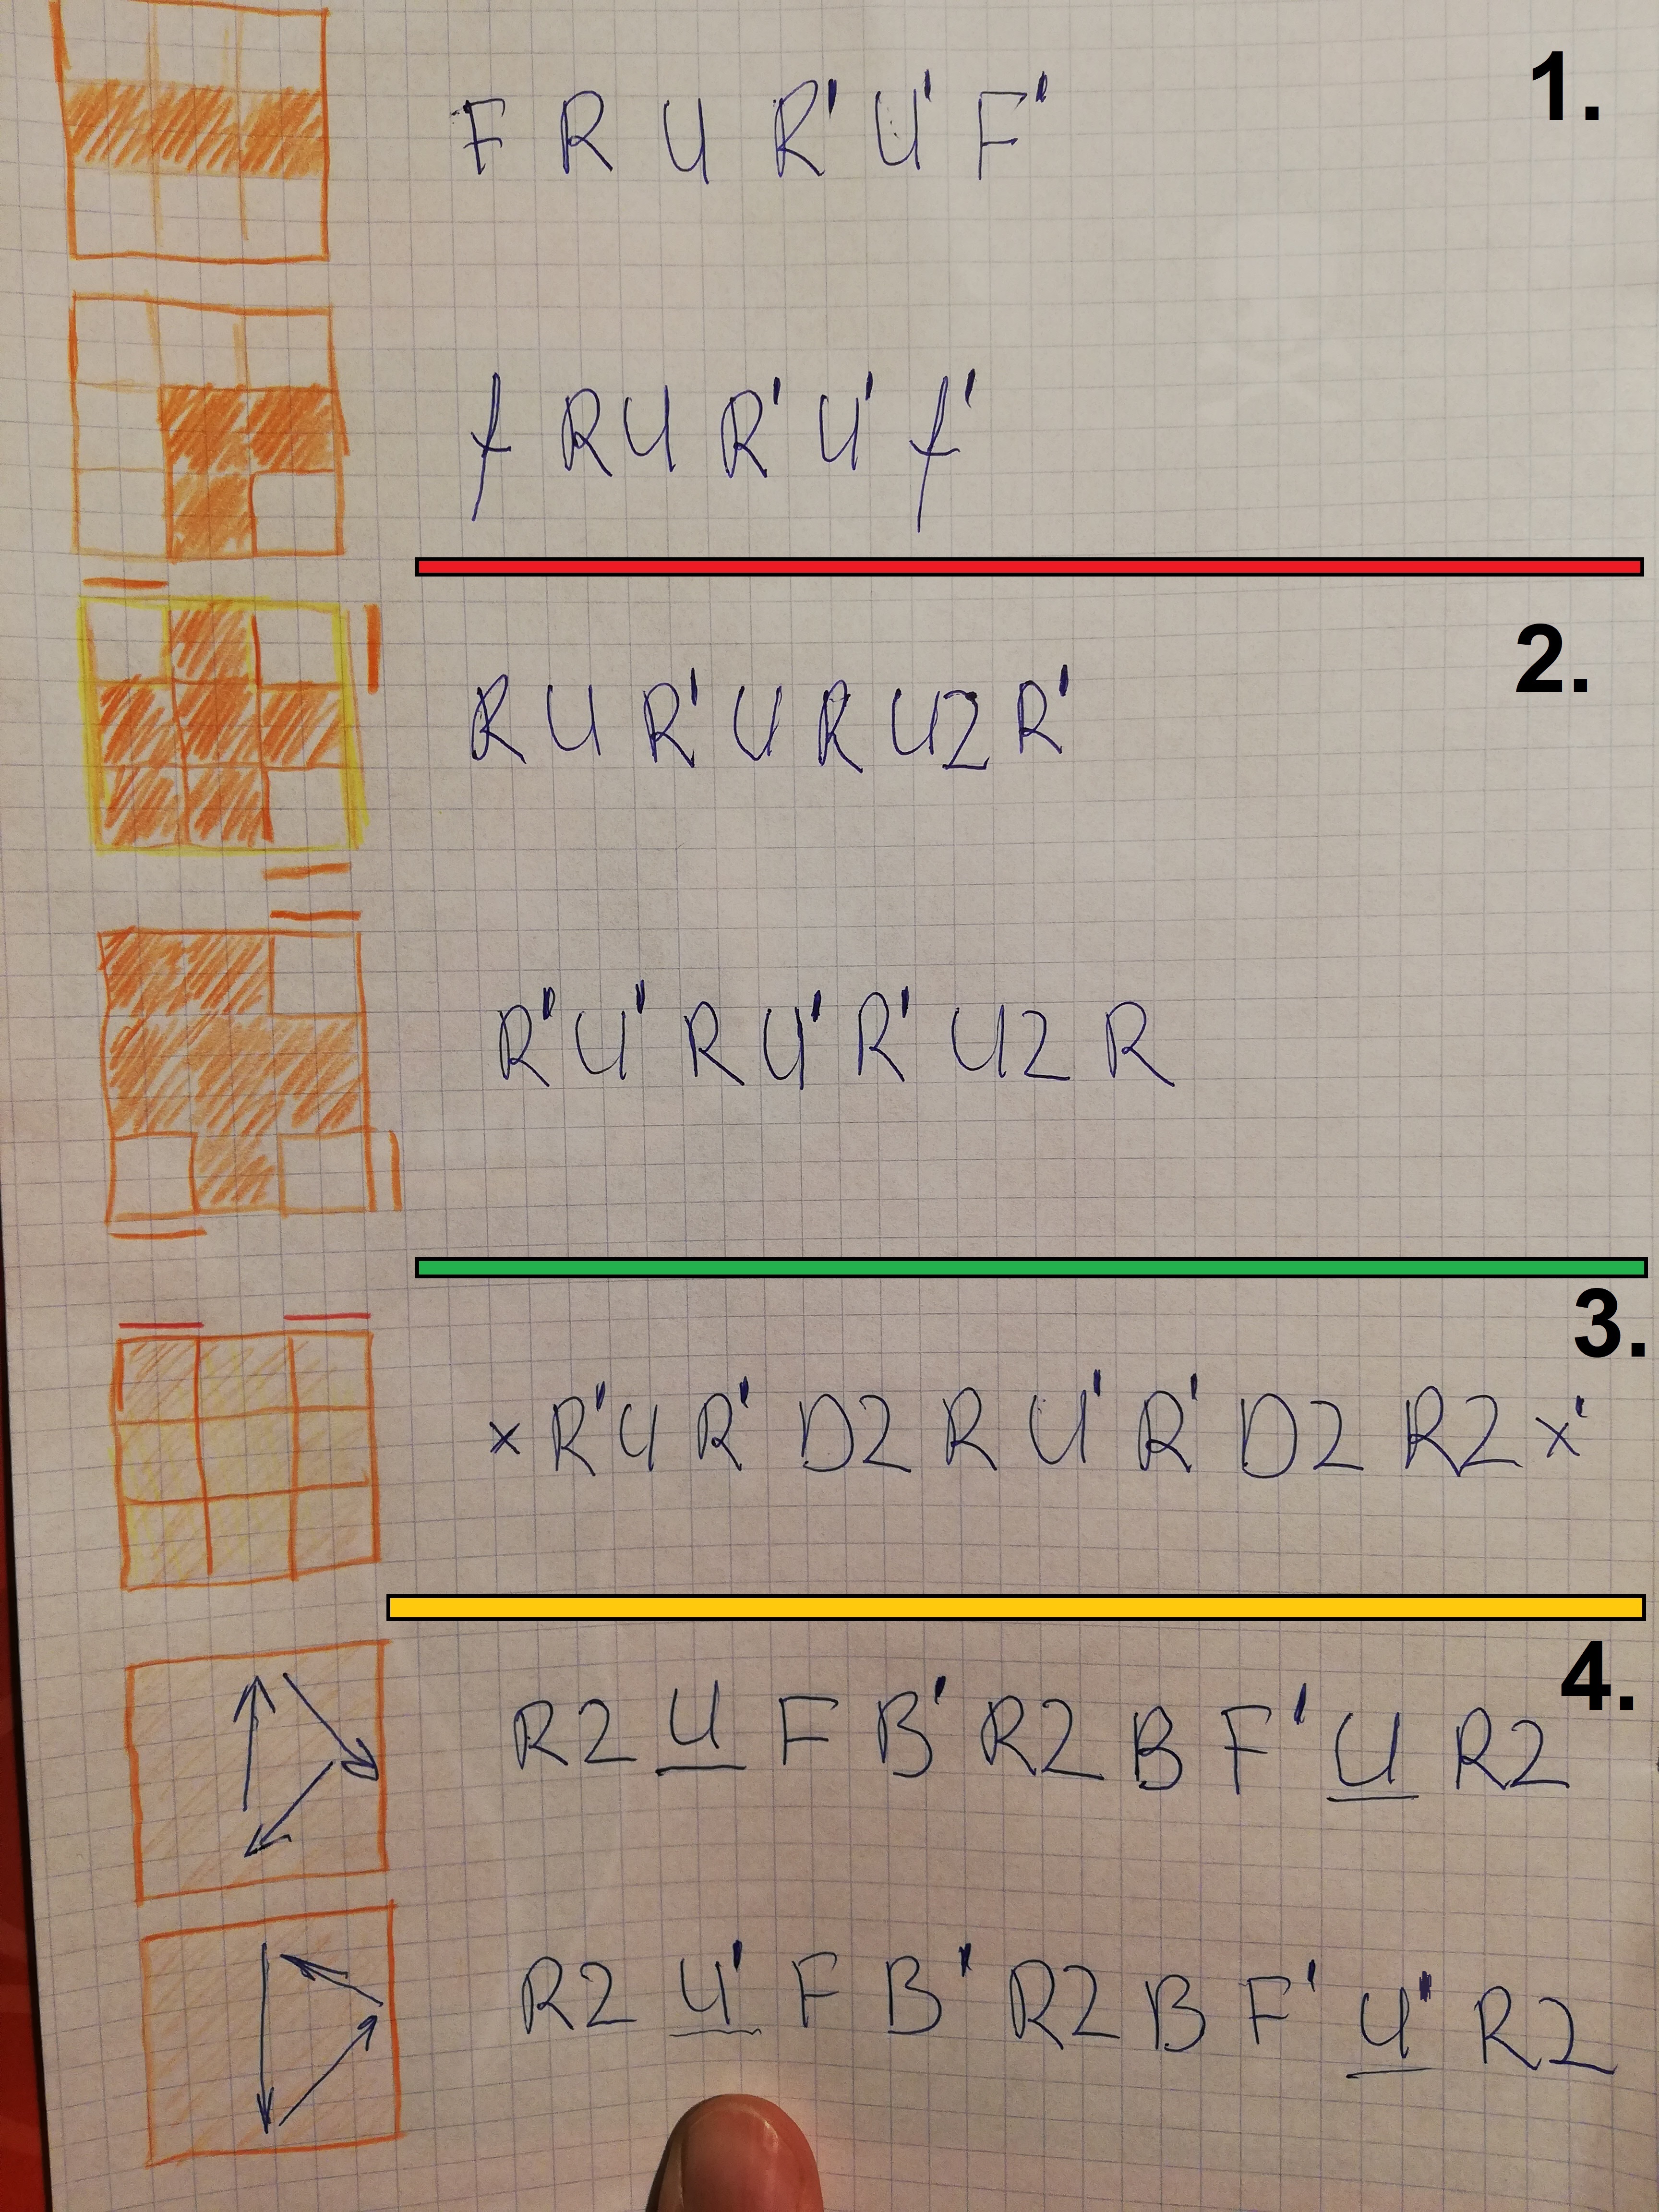 1.
F R U R' U' F'
f R U R' U' f'
2.
R U R' U R U2 R'
R' U' R U' R' U2 R
3.
x R' U R' D2 R U' R' D2 R2 x'
4.
R2 U F B' R2 B F' U R2
R2 U' F B' R2 B F' U' R2